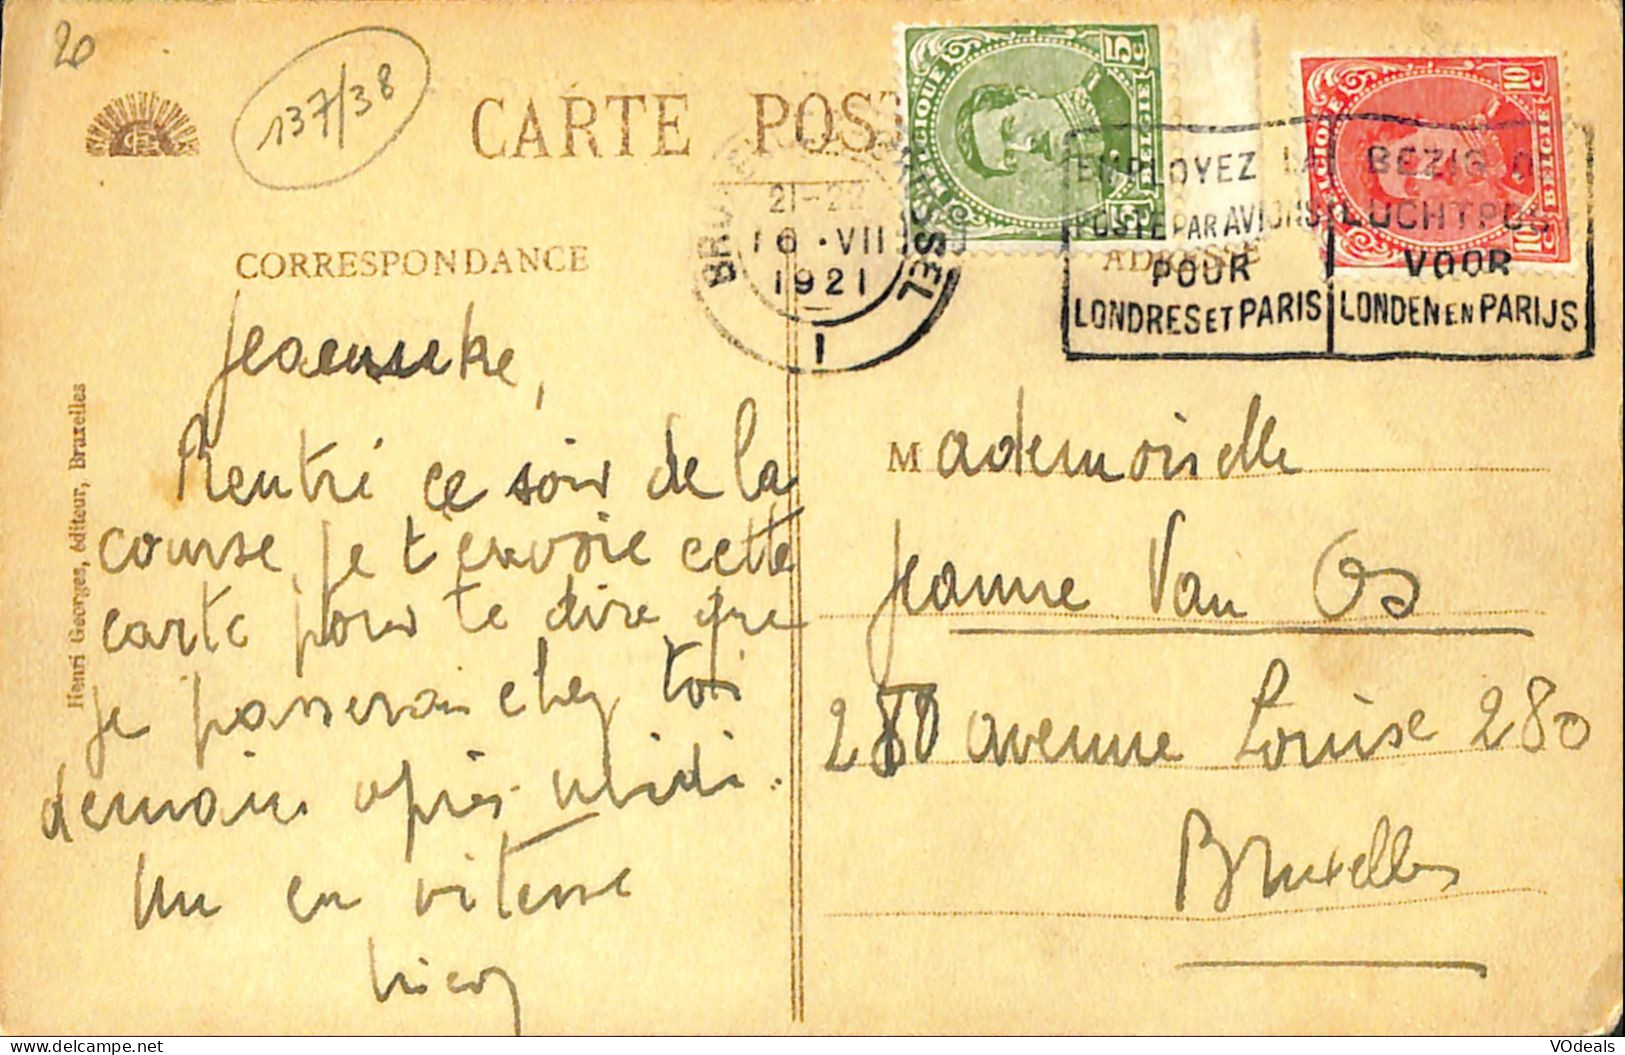 20
137/38
CARTE POST
BELGIQUE 5 C BELGIË 5 C
BELGIQUE 10 C BELGIË 10 C
21-22
16 · VII
1921
BRUSSEL
1
EMPLOYEZ LA
POSTE PAR AVIONS
POUR
LONDRES ET PARIS
BEZIG D
LUCHTPOS
VOOR
LONDEN EN PARIJS
CORRESPONDANCE
ADRESSE
Henri Georges, éditeur, Bruxelles
Rentré ce soir de la
course, je t'envoie cette
carte pour te dire que
je passerai chez toi
demain après-midi.
en vitesse
Mademoiselle
Jeanne Van Os
280 avenue Louise 280
Bruxelles
VOdeals